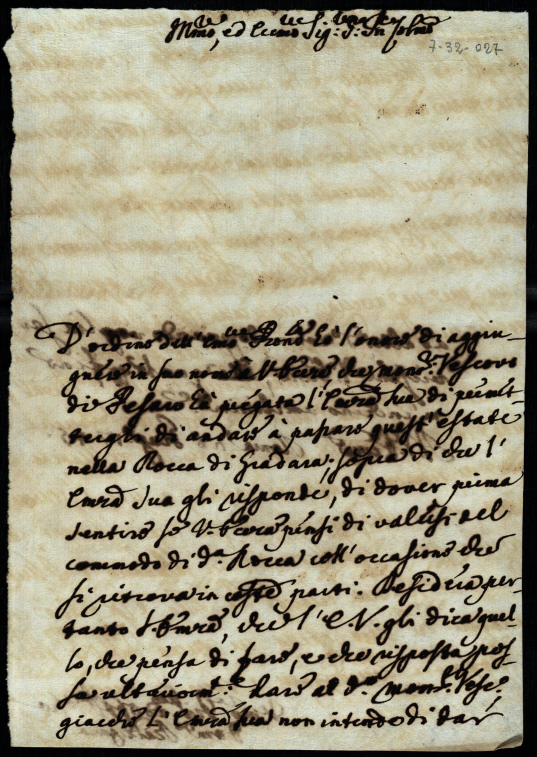 Ill.mo, ed Ecc.mo Sig.r Sig.r P.ron Col.mo
7-32-027
D'ordine dell' Em.mo Pron̄e hò l'onore di aggiu-
gnere in suo nome à V. Ecc.za che mons.r Vescovo
di Pesaro hà pregata l'Em̄za sua di permet-
tergli di andare à passare quest'estate
nella Rocca di Gradara; sopra di che l'
Em̄za Sua gli rispondè, di dover prima
sentire se V. Ecc.za pensi di valersi del
commodo di d.a Rocca coll'occasione che
si ritrova in coteste parti. Desidera per-
tanto S. Em̄za, che l'E.V. gli dica quel-
lo, che pensa di fare, e che risposta pos-
sa dare al d.o mons.r Vesc.o
giacche l'Em̄za sua non intende di dar